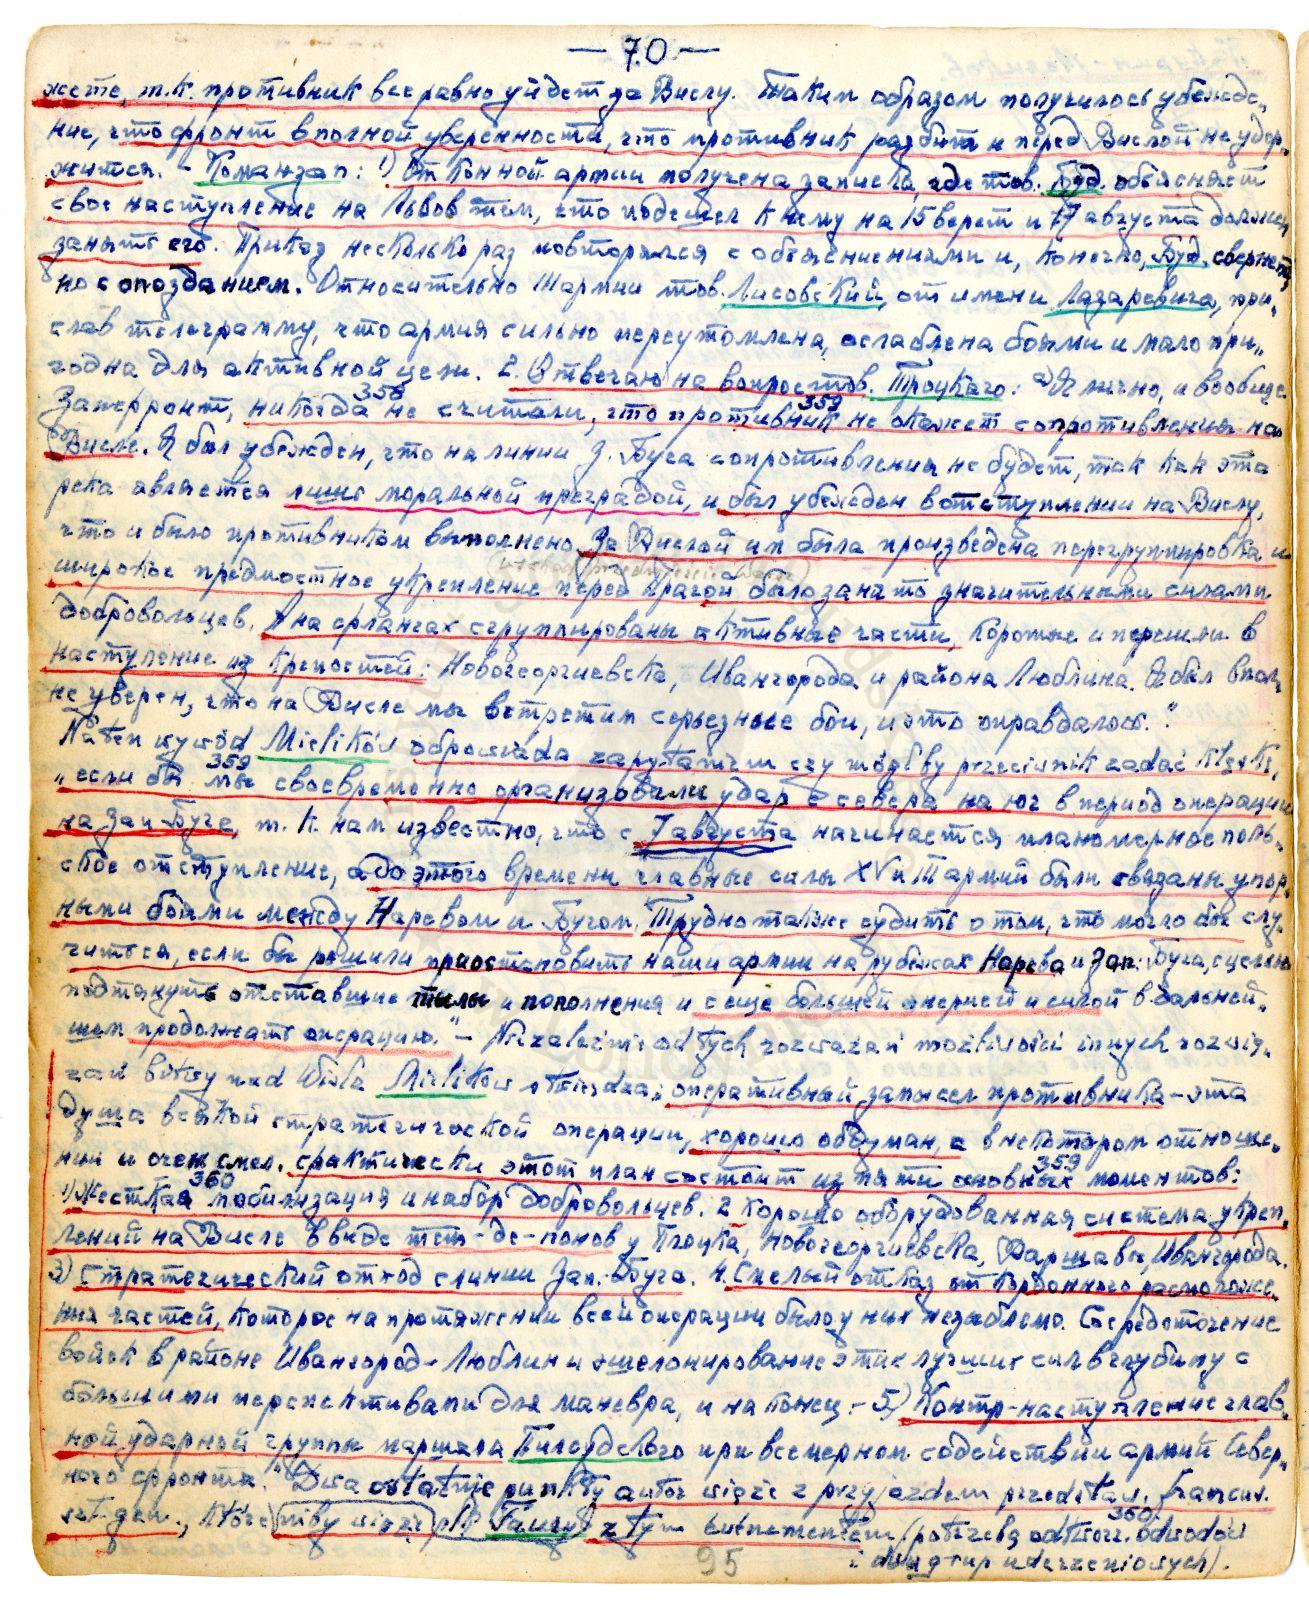 — 70 —
жете, т.к. противник все равно уйдет за Вислу. Таким образом получилось убежде-
ние, что фронт в полной уверенности, что противник разбит и перед Вислой не удер-
жится. - Командзап: 1) От Конной армии получена записка, где тов. Буд. объясняет
свое наступление на Львов тем, что подошел к нему на 15 верст и 17 августа должен
занять его. Приказ несколько раз повторялся с объяснениями и, конечно, Буд. свернет
но с опозданием. Относительно III армии тов. Лисовский, от имени Лазаревича, при-
слав телеграмму, что армия сильно переутомлена, ослаблена боями и мало при-
годна для активной цели. 2. Отвечаю на вопрос тов. Троцкого: а) Я лично, и вообще
358 359
Запфронт, никогда не считали, что противник не окажет сопротивления на
Висле. Я был убежден, что на линии З. Буга сопротивления не будет, так как эта
река является лишь моральной преградой, и был убежден в отступлении на Вислу,
что и было противником выполнено. За Вислой им была произведена перегруппировка и
широкое предмостное укрепление перед Прагой было занято значительными силами
добровольцев. А на флангах сгруппированы активные части, которые и перешли в
наступление из крепостей: Новогеоргиевска, Ивангорода и района Люблина. Я был впол-
не уверен, что на Висле мы встретим серьезные бои, и это оправдалось."
Na ten wywód Mielikow odpowiada zapytaniem czy mógłby przeciwnik zadać klęskę,
359
„если бы мы своевременно организовали удар с севера на юг в период операции
на Зап. Буге, т.к. нам известно, что с 7 августа начинается планомерное поль-
ское отступление, а до этого времени главные силы XV и III армий были связаны упор-
ными боями между Наревом и Бугом. Трудно также судить о том, что могло бы слу-
читься, если бы решили приостановить наши армии на рубежах Нарева и Зап. Буга, с целью
подтянуть отставшие тылы и пополнения и с еще большей энергией и силой в дальней-
шем продолжать операцию." — Niezależnie od tych rozważań możliwości innych rozwią-
zań bitwy nad Wisłą Mielikow stwierdza: „оперативный замысел противника - эта
душа всякой стратегической операции, хорошо обдуман, а в некотором отноше-
нии и очень смел. Фактически этот план состоит из пяти основных моментов:
360 359
1) Жесткая мобилизация и набор добровольцев. 2 Хорошо оборудованная система укреп-
лений на Висле в виде тет-де-понов у Плоцка, Новогеоргиевска, Варшавы, Ивангорода.
3) Стратегический отход с линии Зап. Буга. 4. Смелый отказ от кордонного расположе-
ния частей, которое на протяжении всей операции было у них незыблемо. Сосредоточение
войск в районе Ивангород-Люблин и эшелонирование этих лучших сил в глубину с
большими перспективами для маневра, и наконец - 5) Контр-наступление глав-
ной ударной группы маршала Пилсудского при всемерном содействии армий Север-
ного фронта." Dwa ostatnie punkty autor wiąże z przyjazdem przedstaw. francus.
360
szt. gen., które niby wiąże z tym (potrzebą odtworz. odwodów
i dwu grup uderzeniowych).
95